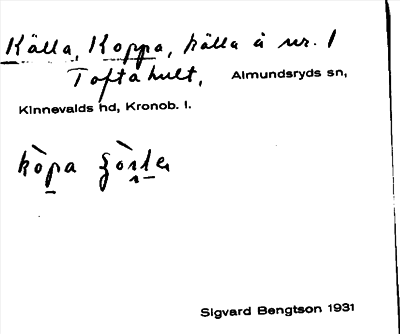 Källa, Koppa, källa å nr. 1
Toftåhult, Almundsryds sn,
Kinnevalds hd, Kronob. l.
kòpa
Sigvard Bengtson 1931